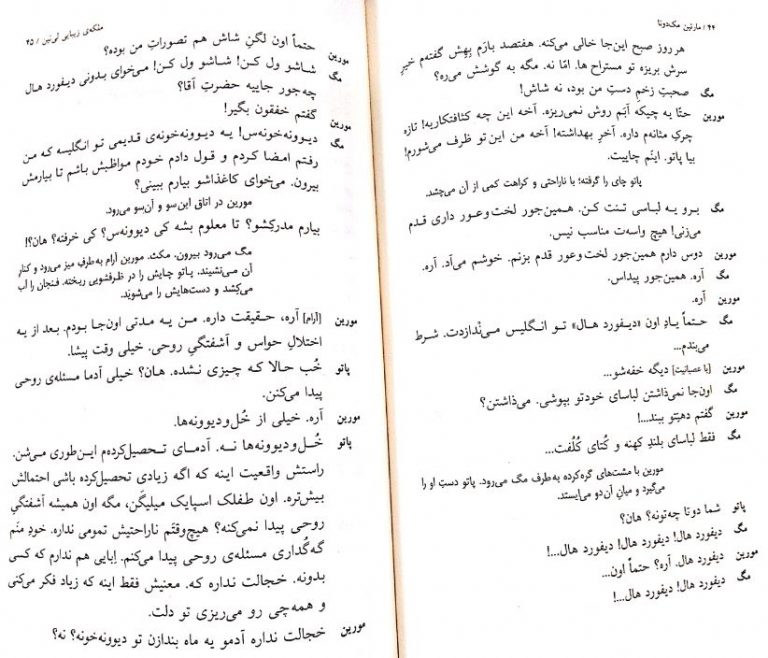 ۴۴ / مارتین مک‌دونا
هر روز صبح این‌جا خالی می‌کنه. هفتصد بازم بِهش گفتم خیر
سرش بریزه تو مستراح ها. امّا نه. مگه به گوشش می‌ره؟
مگ صحبتِ زخمِ دستِ من بود، نه شاش!
مورین حتّا یه چیکه آبَم روش نمی‌ریزه. آخه این چه کثافتکاریه! تازه
چرکِ مثانه‌م داره. آخرِ بهداشته! آخه من این تو ظرف می‌شورم!
بیا پاتو. اینَم چاییت.
پاتو چای را گرفته؛ با ناراحتی و کراهت کمی از آن می‌چشد.
مگ برو یه لباسی تنت کن. همین‌جور لخت‌وعور داری قدم
می‌زنی! هیچ واسه‌ت مناسب نیس.
مورین دوس دارم همین‌جور لخت‌وعور قدم بزنم. خوشم می‌آد. آره.
مگ آره. همین‌جور پیداس.
مورین آره.
مگ حتماً یادِ اون «دیفورد هال» تو انگلیس می‌نْدازدت. شرط
می‌بندم...
مورین [با عصبانیت] دیگه خفه‌شو...
مگ اون‌جا نمی‌ذاشتن لباسای خودتو بپوشی. می‌ذاشتن؟
مورین گفتم دهنِتو ببند...!
مگ فقط لباسای بلندِ کهنه و کُتای کُلُفت...
مورین با مشت‌های گره‌کرده به‌طرف مگ می‌رود. پاتو دستِ او را
می‌گیرد و میانِ آن دو می‌ایستد.
پاتو شما دو تا چه‌تونه؟ هان؟
مگ دیفورد هال! دیفورد هال! دیفورد هال...!
مورین دیفورد هال. آره؟ حتماً اون...
مگ دیفورد هال! دیفورد هال...!
ملکه‌ی زیبایی لی‌نین / ۴۵
مورین حتماً اون لگنِ شاش هم تصوراتِ من بوده؟
مگ شاشو ول کن! شاشو ول کن! می‌خوای بدونی دیفورد هال
چه‌جور جاییه حضرتِ آقا؟
مورین گفتم خفقون بگیر!
مگ دیوونه‌خونه‌س! یه دیوونه‌خونه‌ی قدیمی تو انگلیسه که من
رفتم امضا کردم و قول دادم خودم مواظبش باشم تا بیارمش
بیرون. می‌خوای کاغذاشو بیارم ببینی؟
مورین در اتاق این‌سو و آن‌سو می‌رود.
بیارم مدرکِشو؟ تا معلوم بشه کی دیوونه‌س؟ کی خرفته؟ هان؟!
مگ می‌رود بیرون. مکث. مورین آرام به‌طرفِ میز می‌رود و کنارِ
آن می‌نشیند. پاتو چایش را در ظرفشویی ریخته. فنجان را آب
می‌کِشد و دست‌هایش را می‌شویَد.
مورین [آرام] آره، حقیقت داره. من یه مدتی اون‌جا بودم. بعد از یه
اختلالِ حواس و آشفتگیِ روحی. خیلی وقت پیشا.
پاتو خُب حالا که چیزی نشده. هان؟ خیلی آدما مسئله‌ی روحی
پیدا می‌کنن.
مورین آره. خیلی از خُل‌ودیوونه‌ها.
پاتو خُل‌ودیوونه‌ها نه. آدمای تحصیل‌کرده‌م این‌طوری می‌شن.
راستش واقعیت اینه که اگه زیادی تحصیل‌کرده باشی احتمالش
بیش‌تره. اون طفلک اسپایک میلیگَن، مگه اون همیشه آشفتگیِ
روحی پیدا نمی‌کنه؟ هیچ‌وقتَم ناراحتیش تمومی نداره. خودِ منَم
گه‌گُداری مسئله‌ی روحی پیدا می‌کنم. اِبایی هم ندارم که کسی
بدونه. خجالت نداره که. معنیش فقط اینه که زیاد فکر می‌کنی
و همه‌چی رو می‌ریزی تو دلت.
مورین خجالت نداره آدمو یه ماه بندازن تو دیوونه‌خونه؟ نه؟